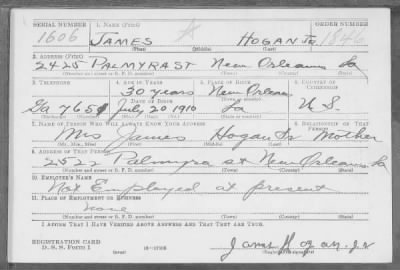 SERIAL NUMBER 1. NAME (Print) ORDER NUMBER
1606 JAMES HOGAN JR. 1846
(First) (Middle) (Last)
2. ADDRESS (Print)
2425 PALMYRA ST New Orleans La
(Number and street or R. F. D. number) (Town) (County) (State)
3. TELEPHONE 4. AGE IN YEARS 5. PLACE OF BIRTH 6. COUNTRY OF CITIZENSHIP
30 years New Orleans
DATE OF BIRTH (Town or county)
Ga 7651 July 20 1910 La U S
(Exchange) (Number) (Mo.) (Day) (Yr.) (State or country)
7. NAME OF PERSON WHO WILL ALWAYS KNOW YOUR ADDRESS 8. RELATIONSHIP OF THAT PERSON
Mrs James Hogan Sr Mother
(Mr., Mrs., Miss) (First) (Middle) (Last)
9. ADDRESS OF THAT PERSON
2522 Palmyra st New Orleans La
(Number and street or R. F. D. number) (Town) (County) (State)
10. EMPLOYER'S NAME
Not Employed at present
11. PLACE OF EMPLOYMENT OR BUSINESS
none
(Number and street or R. F. D. number) (Town) (County) (State)
I AFFIRM THAT I HAVE VERIFIED ABOVE ANSWERS AND THAT THEY ARE TRUE.
REGISTRATION CARD
D. S. S. Form 1 (over) James Hogan Jr